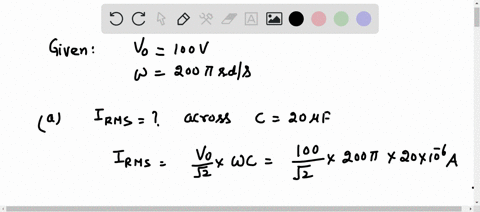 A
Given: V₀ = 100V
ω = 200π rd/s
(a) I_RMS = ? across C = 20 μF
I_RMS = V₀/√2 × ωC = 100/√2 × 200π × 20×10⁻⁶ A